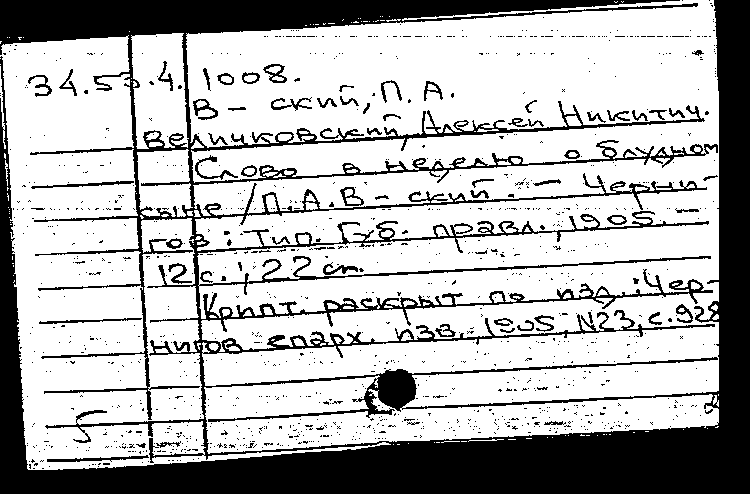 34.53.4. 1008.
В - ский, П. А.
Величковский, Алексей Никитич.
Слово в неделю о блудном
сыне / П. А. В - ский. — Черни-
гов : Тип. Губ. правл., 1905. —
12 с. ; 22 см.
Крипт. раскрыт по изд. : Чер-
нигов. епарх. изв., 1905, N23, с. 928
5